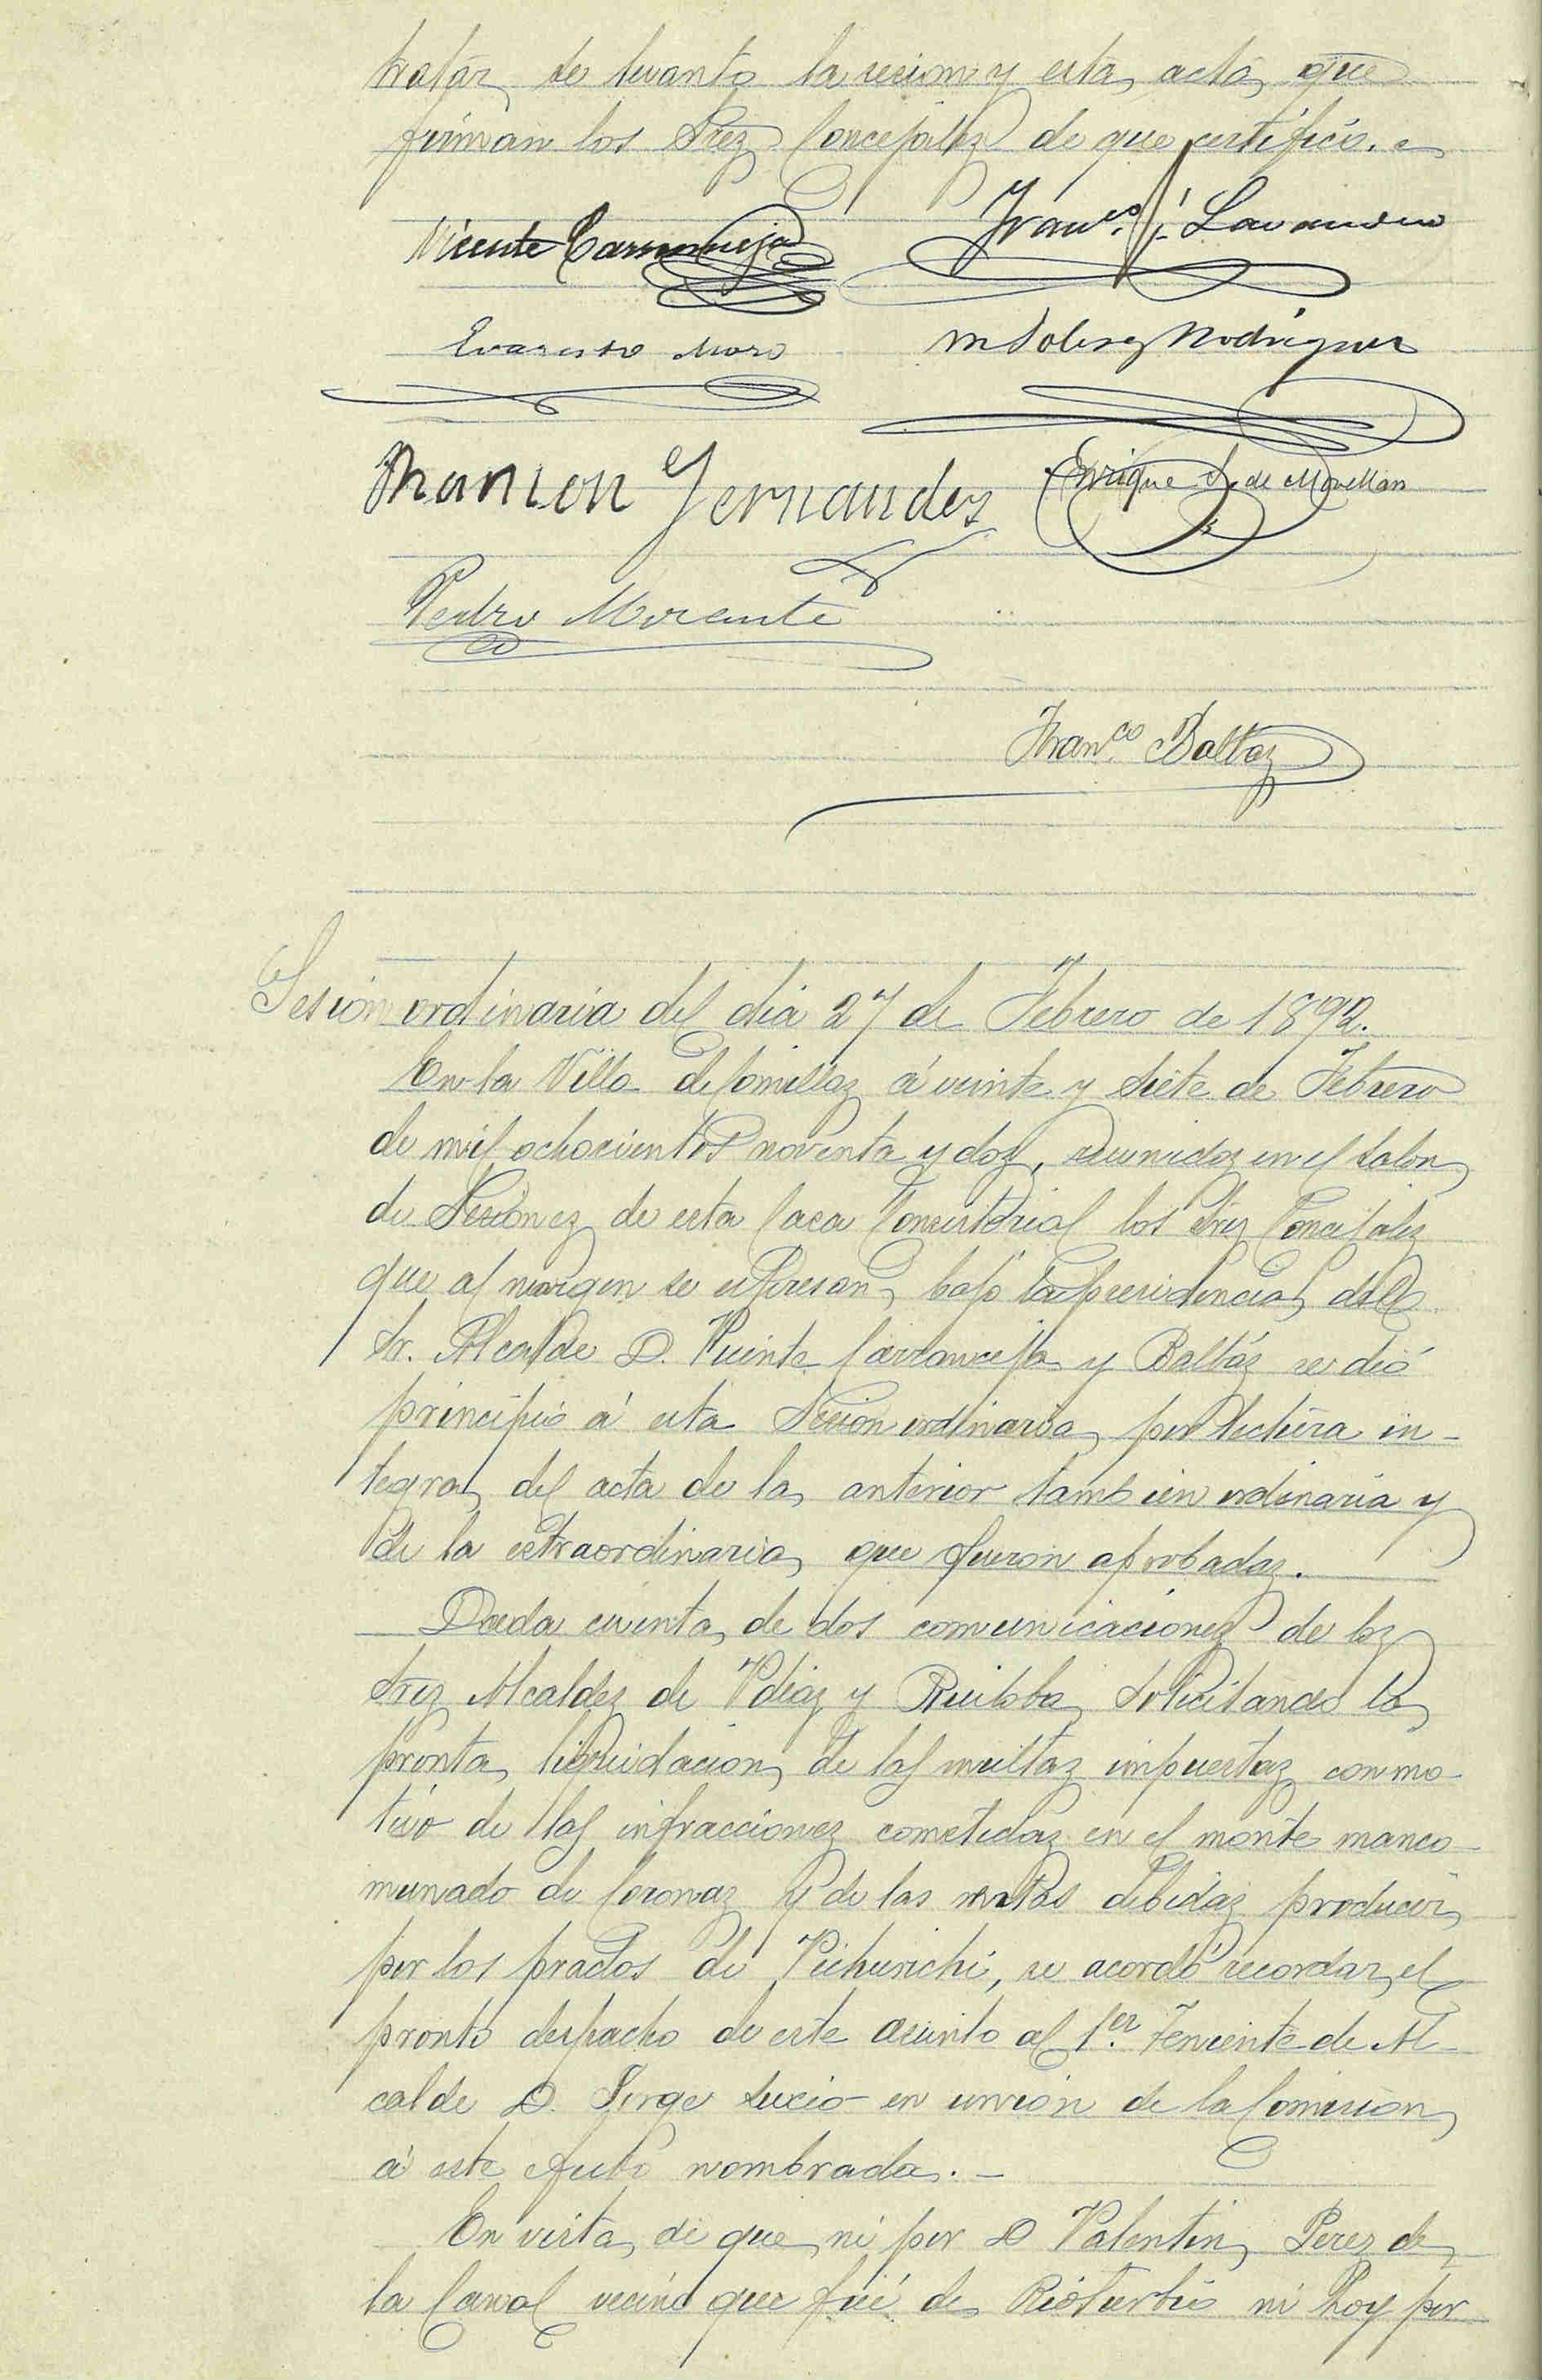 tratar se levanto la sesion y esta acta, que
firman los Sres Concejales de que certifico.
Vicente Carranceja Franco. S. Lavandero
Evaristo Moro M Solis y Rodriguez
Ramon Fernandez Enrique S. de Movellan
Pedro Morante
Franco Baltaz
Sesion ordinaria del dia 27 de Febrero de 1892.
En la Villa de Comillas á veinte y siete de Febrero
de mil ochocientos noventa y dos, reunidos en el Salon
de Sesiones de esta Casa Consistorial los Sres Concejales
que al margen se espresan, bajo la presidencia del
Sr. Alcalde D. Vicente Carranceja y Baltáz se dió
principio á esta Sesion ordinaria, por lectura in-
tegra, del acta de la anterior tambien ordinaria y
de la estraordinaria, que fueron aprobadas.
Dada cuenta, de dos comunicaciones de los
Sres Alcaldes de Vdias y Ruiloba, solicitando la
pronta, liquidacion, de las multas impuestas, con mo-
tivo de las infracciones cometidas en el monte manco-
munado de Coronas y de las rentas debidas producir
por los prados de, se acordó recordar, el
pronto despacho de este asunto al 1er. Teniente de Al-
calde D. Jorge Sucio en union de la Comision,
á este efecto nombrada. -
En vista, de que, ni por D Valentin, Perez de
la Canal vecino que fué de Rioturbio ni hoy por